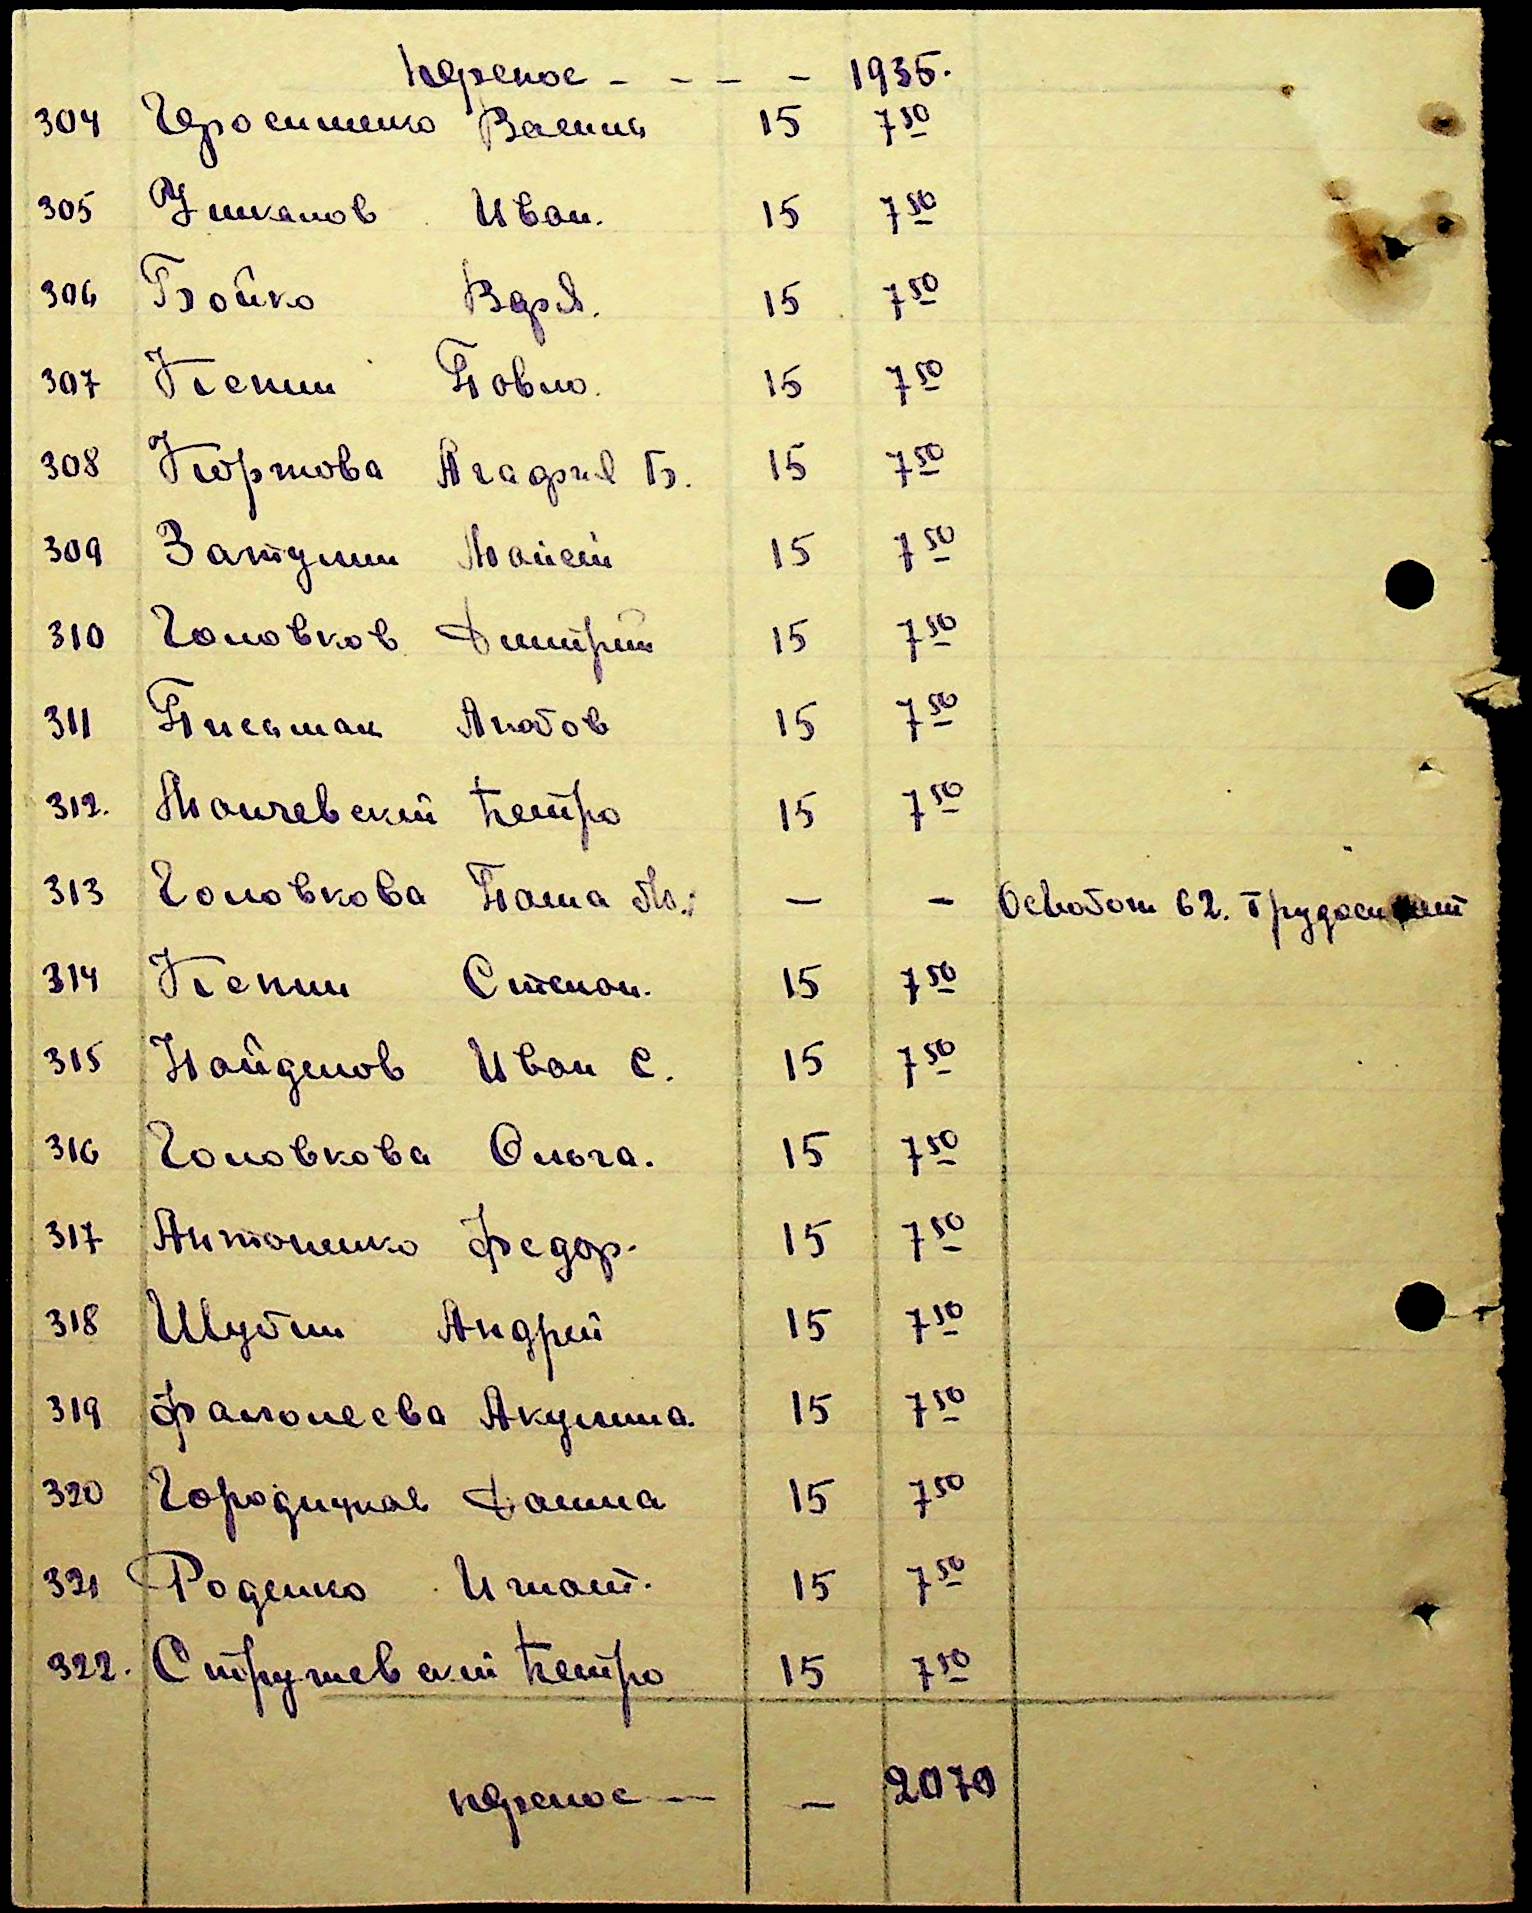 перенос - - - - 1935.
304 Герасименко Василь 15 7 50
305 Ушканов Иван. 15 7 50
306 Бойко 15 7 50
307 Кепин Павло. 15 7 50
308 Кортова Агафия Б. 15 7 50
309 Моисей 15 7 50
310 Головков Дмитрий 15 7 50
311 Письмак 15 7 50
312. Маичевский Петро 15 7 50
313 Головкова Паша М. — - 62.
314 Кепин Степан. 15 7 50
315 Найденов Иван С. 15 7 50
316 Головкова Ольга. 15 7 50
317 Антоненко Федор. 15 7 50
318 Шубин Андрей 15 7 50
319 Акулина. 15 7 50
320 Городицкая 15 7 50
321 Роденко Игнат. 15 7 50
322. Петро 15 7 50
перенос — — 2070